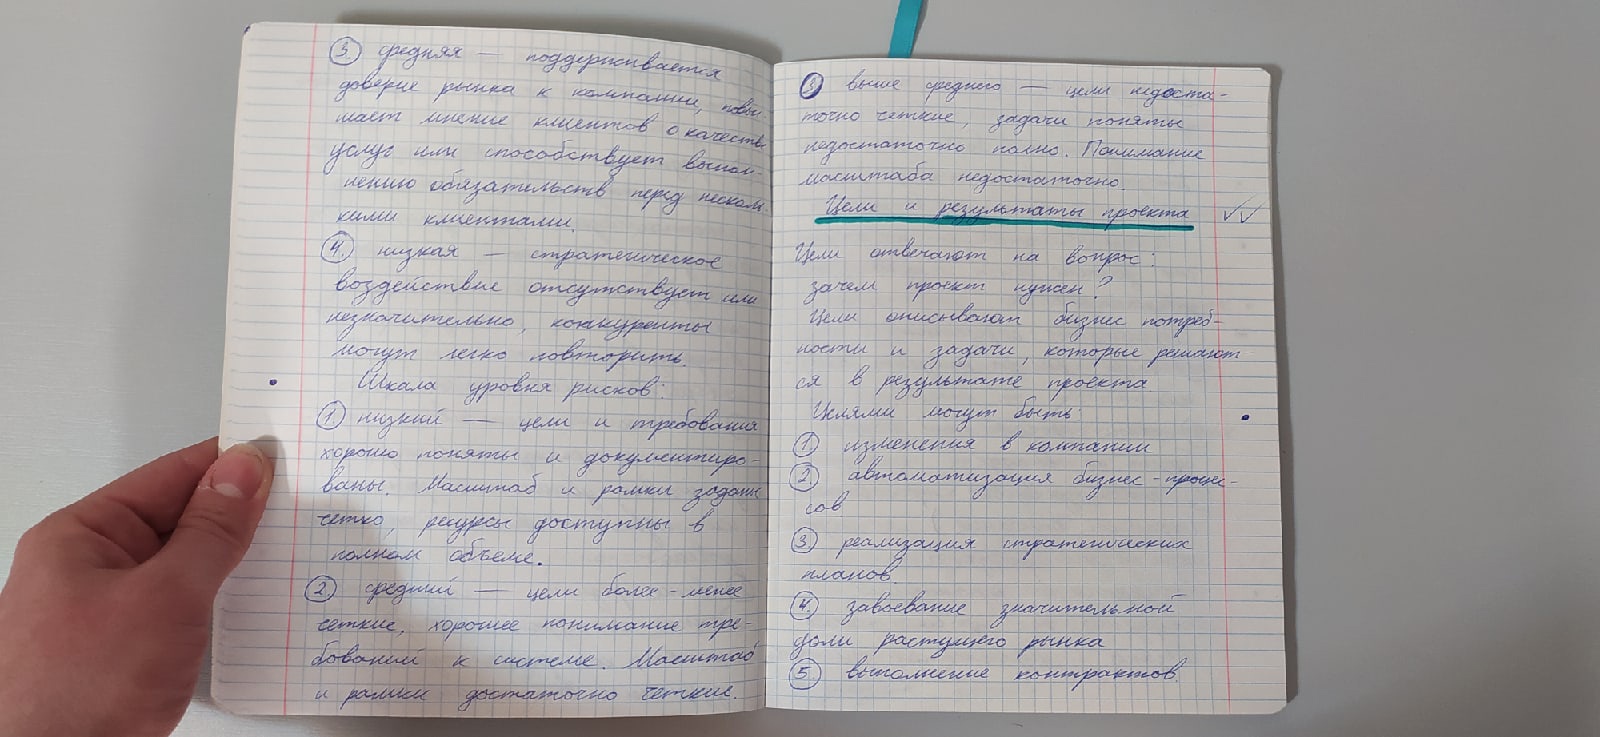 ③ средняя — поддерживается
доверие рынка к компании, повы-
шает мнение клиентов о качеств
услуг или способствует выпол-
нению обязательств перед несколь-
кими клиентами.
④. низкая — стратегическое
воздействие отсутствует или
незначительно, конкуренты
могут легко повторить.
• Шкала уровня рисков:
①. низкий — цели и требования
хорошо поняты и документиро-
ваны. Масштаб и рамки заданы
четко, ресурсы доступны в
полном объеме.
② средний — цели более-менее
четкие, хорошее понимание тре-
бований к системе. Масштаб
и рамки достаточно четкие.
③ выше среднего — цели недоста-
точно четкие, задачи поняты
недостаточно полно. Понимание
масштаба недостаточно.
Цели и результаты проекта ✓✓
Цели отвечают на вопрос:
зачем проект нужен?
Цели описывают бизнес потреб-
ности и задачи, которые решают-
ся в результате проекта
Целями могут быть: •
①. изменения в компании
②. автоматизация бизнес-процес-
сов
③. реализация стратегических
планов.
④. завоевание значительной
доли растущего рынка
⑤. выполнение контрактов.